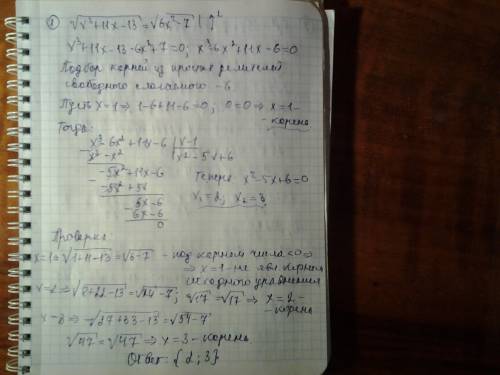 ① √x³+11x-13 = √6x²-7 | ↑²
x³+11x-13-6x²+7=0; x³-6x²+11x-6=0
Подбор корней из простых делителей
свободного слагаемого -6
Пусть x=1 ⇒ 1-6+11-6=0; 0=0 ⇒ x=1-
- корень
Тогда:
x³-6x²+11x-6 | x-1
x³-x² | x²-5x+6
-5x²+11x-6
-5x²+5x
6x-6
6x-6
0
Теперь x²-5x+6=0
x₁=2; x₂=3
Проверка:
x=1 ⇒ √1+11-13 = √6-7 - под корнем числа <0 ⇒
⇒ x=1 - не явл. корнем
исходного уравнения
x=2 ⇒ √8+22-13 = √24-7; √17 = √17 ⇒ x=2 -
- корень
x=3 ⇒ √27+33-13 = √54-7
√47 = √47 ⇒ x=3 - корень
Ответ: {2; 3}